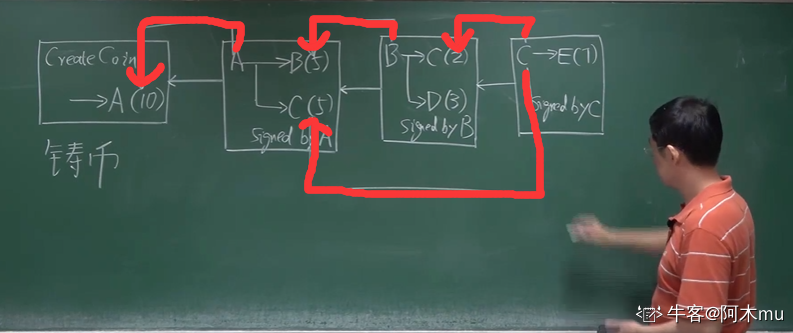 Create Coin
A (10)
A
B (5)
C (5)
Signed by A
B
C (2)
D (3)
Signed by B
C
E (7)
Signed by C
铸币
牛客@阿木mu